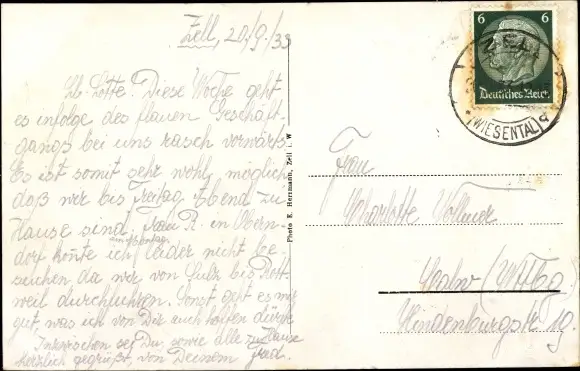 Zell, 20/9./33
Lb. Lotte! Diese Woche geht
es infolge des flauen Geschäft-
gangs bei uns rasch vorwärts.
Es ist somit sehr wohl möglich
daß wir bis Freitag Abend zu
Hause sind. Frau R. in Obern-
dorf konnte ich leider nicht be-
suchen da wir von Sulz bis Rott-
weil durchfuhren. Sonst geht es mir
gut, was ich von Dir auch hoffen dürfte
Inzwischen sei Du, sowie alle zu Hause
herzlich gegrüßt, von Deinem
Photo K. Herrmann, Zell i. W
6 6
Deutsches Reich
ZELL
(WIESENTAL)
Frau
Charlotte Vollmer
Calw/Wttbg.
Hindenburgstr. 19.